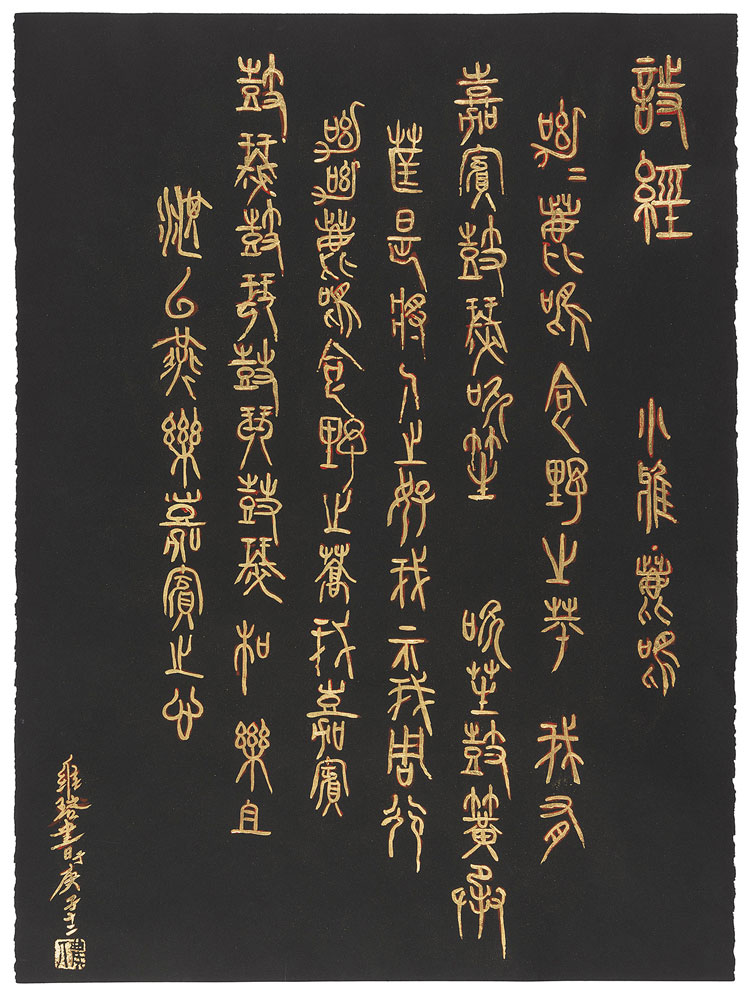 詩經 小雅·鹿鳴
呦〻鹿鳴食野之苹 我有
嘉賓鼓瑟吹笙 吹笙鼓簧承
筐是將人之好我示我周行
呦呦鹿鳴食野之我嘉賓
鼓瑟鼓琴鼓琴鼓瑟和樂且
湛以燕樂嘉賓之心
書時庚子十二